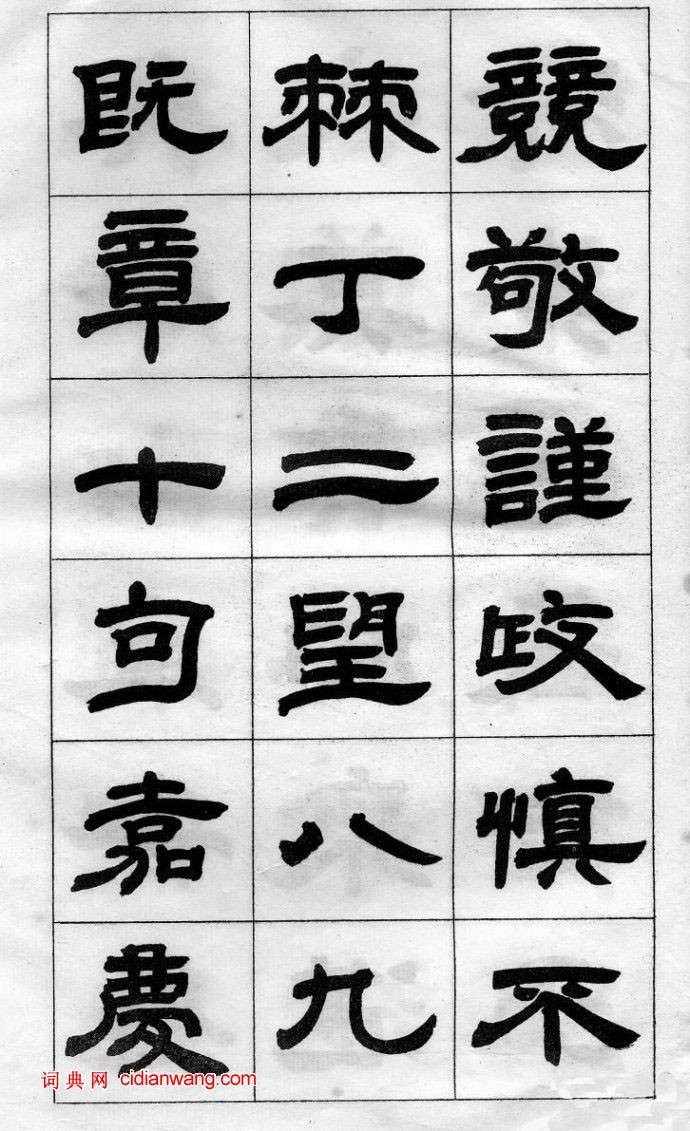 競敬謹政慎不
棘丁二望八九
既章十句嘉慶
词典网 cidianwang.com